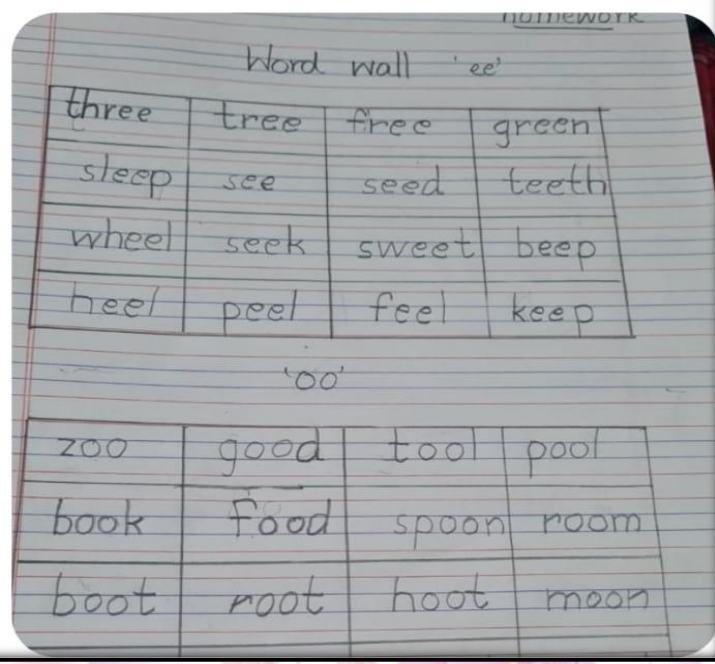 homework
Word wall 'ee'
three tree free green
sleep see seed teeth
wheel seek sweet beep
heel peel feel keep
'oo'
zoo good tool pool
book food spoon room
boot root hoot moon